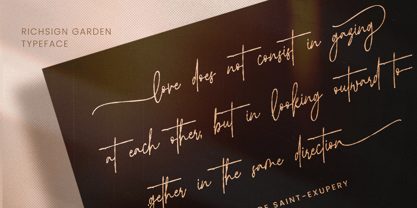 RICHSIGN GARDEN
TYPEFACE
love does not consist in gazing
at each other, but in looking outward to-
gether in the same direction
SAINT-EXUPERY